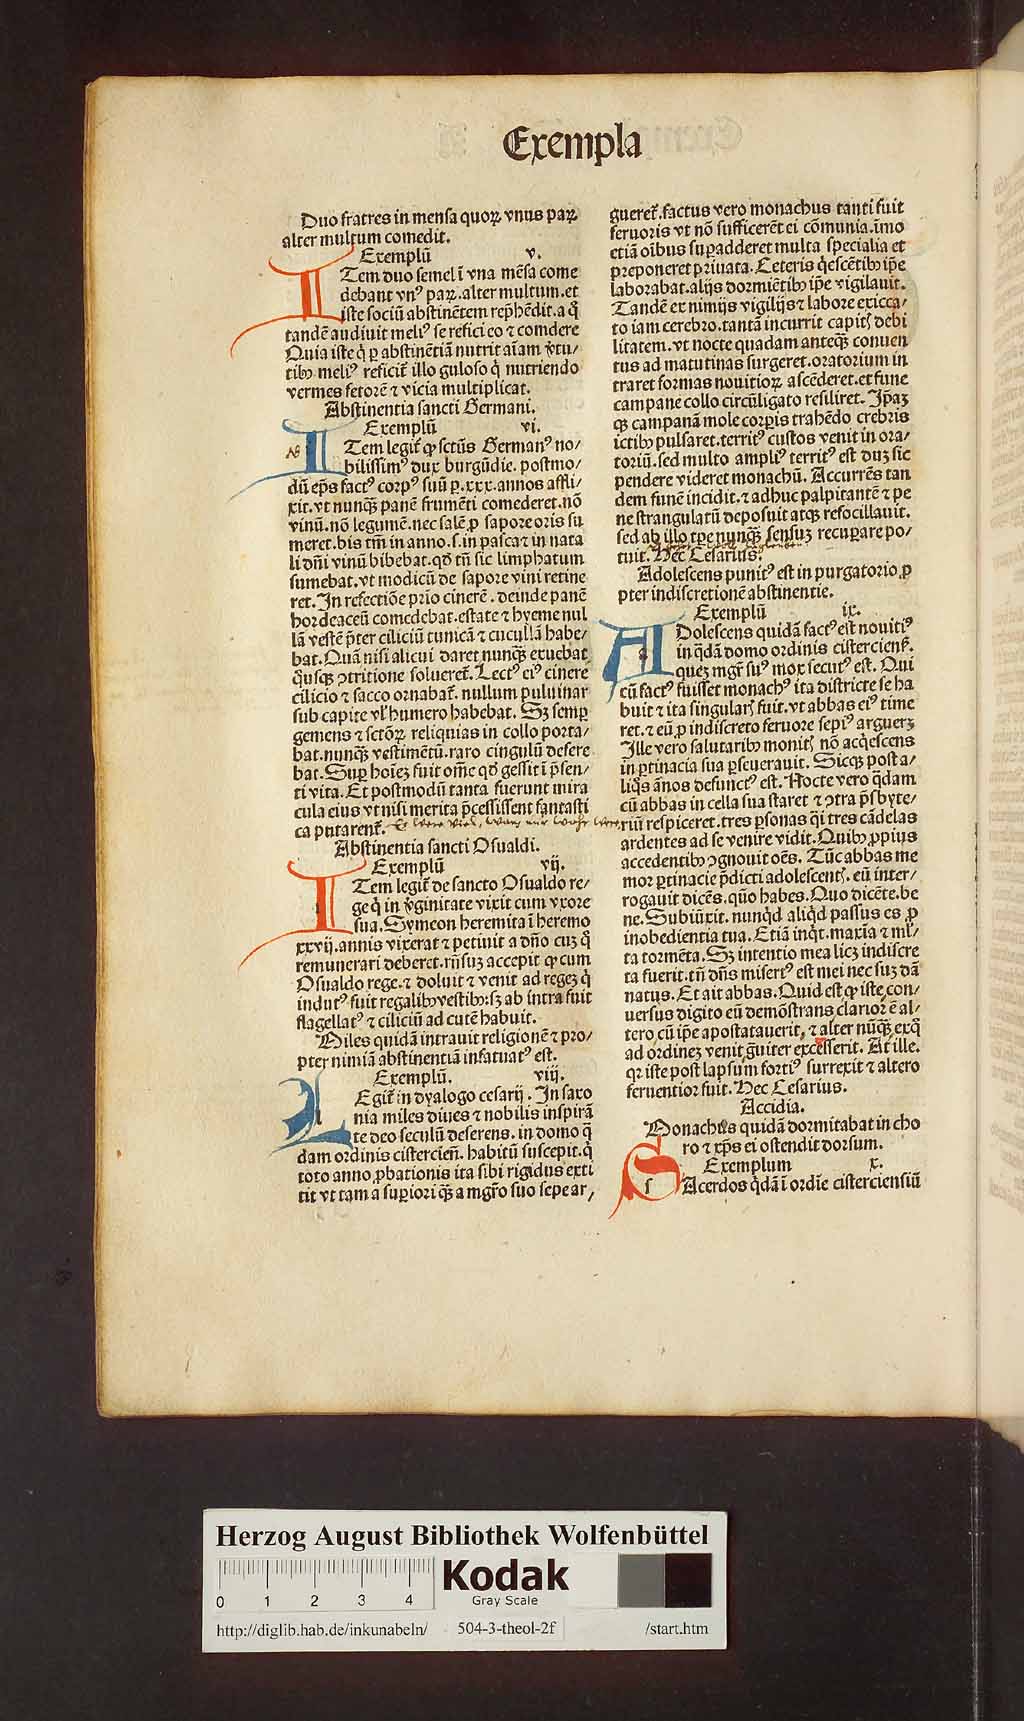 Exempla
Duo fratres in mensa quoꝝ vnus paꝝ
alter multum comedit.
Exemplū v.
ITem duo semel ī vna mēsa come
debant vnꝰ paꝝ. alter multum. et
iste sociū abstinētem rep̄hēdit. a q̊
tandē audiuit meliꝰ se refici eo ⁊ comdere
Quia iste q̇ ꝑ abstinētiā nutrit aīam v̓tu⸗
tibꝫ meliꝰ reficit᷑ illo guloso q̇ nutriendo
vermes fetorē ⁊ vicia multiplicat.
Abstinentia sancti Germani.
Exemplū vi.
ITem legit᷑ ꝙ sctūs Germanꝰ no⸗
bilissimꝰ dux burgūdie. postmo⸗
dū ep̄s factꝰ corpꝰ suū ꝑ .xxx. annos affli⸗
xit. vt nunqꝫ̄ panē frumēti comederet. nō
vinū. nō legumē. nec salē ꝓ sapore oris su
meret. bis tm̄ in anno .s. in pasca ⁊ in nata
li dn̄i vinū bibebat. qd̄ tn̄ sic limphatum
sumebat. vt modicū de sapore vini retine
ret. In refectiōe prio cinerē. deinde panē
hordeaceū comedebat. estate ⁊ hyeme nul
lā vestē p̄ter ciliciū tunicā ⁊ cucullā habe⸗
bat. Quā nisi alicui daret nunqꝫ̄ exuebat
q̊usqꝫ ↄtritione solueret᷑. Lectꝰ eiꝰ cinere
cilicio ⁊ sacco ornabat᷑. nullum puluinar
sub capite vl̓ humero habebat. Sꝫ semꝑ
gemens ⁊ sctōꝝ reliquias in collo porta⸗
bat. nunqꝫ̄ vestimētū. raro cingulū desere
bat. Suꝑ hoīeꝫ fuit om̄e qd̄ gessit ī p̄sen⸗
ti vita. Et postmodū tanta fuerunt mira
cula eius vt nisi merita p̄cessissent fantasti
ca putarent᷑.
Abstinentia sancti Osualdi.
Exemplū vij.
ITem legit᷑ de sancto Osualdo re⸗
ge q̇ in v̓ginitate vixit cum vxore
sua. Symeon heremita ī heremo
xxvij. annis vixerat ⁊ petiuit a dn̄o cuꝫ q̊
remunerari deberet. rn̄suꝫ accepit ꝙ cum
Osualdo rege. ⁊ doluit ⁊ venit ad regeꝫ q̇
indutꝰ fuit regalibꝫ vestibꝫ: sꝫ ab intra fuit
flagellatꝰ ⁊ ciliciū ad cutē habuit.
Miles quidā intrauit religionē ⁊ pro⸗
pter nimiā abstinentiā infatuatꝰ est.
Exemplū. viij.
LEgit᷑ in dyalogo cesarij. In saxo
nia miles diues ⁊ nobilis inspirā
te deo seculū deserens. in domo q̄
dam ordinis cistercieñ. habitū suscepit. q̇
toto anno ꝓbationis ita sibi rigidus exti
tit vt tam a superiori qꝫ̄ a mgr̄o suo sepe ar⸗
gueret᷑. factus vero monachus tanti fuit
feruoris vt nō sufficerēt ei cōmunia. imo
etiā oībus suꝑadderet multa specialia et
p̄poneret priuata. Ceteris q̇escētibꝫ ip̄e
laborabat. alijs dormiētibꝫ ip̄e vigilauit.
Tandē ex nimijs vigilijs ⁊ labore exicca⸗
to iam cerebro. tantā incurrit capitꝭ debi
litatem. vt nocte quadam anteqꝫ̄ conuen
tus ad matutinas surgeret. oratorium in
traret formas nouitioꝝ ascēderet. et fune
campane collo circūligato resiliret. Ip̄aꝫ
qꝫ campanā mole corꝑis trahēdo crebris
ictibꝫ pulsaret. territꝰ custos venit in ora⸗
toriū. sed multo ampliꝰ territꝰ est duꝫ sic
pendere videret monachū. Accurrēs tan
dem funē incidit. ⁊ adhuc palpitantē ⁊ pe
ne strangulatū deposuit atqꝫ refocillauit.
sed ab illo tꝑe nunqꝫ̄ sensuꝫ recuꝑare po⸗
tuit. Hec Cesarius.
Adolescens punitꝰ est in purgatorio ꝓ
pter indiscretionē abstinentie.
Exemplū ix.
ADolescens quidā factꝰ est nouitiꝰ
in q̄dā domo ordinis cistercienꝭ.
queꝫ mgr̄ suꝰ mox secutꝰ est. Qui
cū factꝰ fuisset monachꝰ ita districte se ha
buit ⁊ ita singularꝭ fuit. vt abbas eiꝰ time
ret. ⁊ eū ꝓ indiscreto feruore sepiꝰ argueꝫ
Ille vero salutaribꝫ monitꝭ nō acq̇escens
in ꝑtinacia sua ꝑseuerauit. Sicqꝫ post a⸗
liq̊s ānos defunctꝰ est. Nocte vero q̄dam
cū abbas in cella sua staret ⁊ ↄtra p̄sbyte⸗
riū respiceret. tres ꝑsonas q̇si tres cādelas
ardentes ad se venire vidit. Quibꝫ ꝓpius
accedentibꝫ ↄgnouit oēs. Tūc abbas me
mor ꝑtinacie p̄dicti adolescentꝭ. eū inter⸗
rogauit dicēs. quō habes. Quo dicēte. be
ne. Subiūxit. nunqd̓ aliqd̓ passus es ꝓ
inobedientia tua. Etiā inq̇t. maxīa ⁊ ml̓⸗
ta tormēta. Sꝫ intentio mea licꝫ indiscre
ta fuerit. tn̄ dn̄s misertꝰ est mei nec suꝫ dā
natus. Et ait abbas. Quid est ꝙ iste con⸗
uersus digito eū demōstrans clarior ē al⸗
tero cū ip̄e apostatauerit, ⁊ alter nūqꝫ̄ ex q̊
ad ordineꝫ venit g̓uiter excesserit. At ille.
qꝛ iste post lapsum fortiꝰ surrexit ⁊ altero
feruentior fuit. Hec Cesarius.
Accidia.
Monachus quidā dormitabat in cho
ro ⁊ xp̄s ei ostendit dorsum.
Exemplum x.
SAcerdos q̇dā ī ordīe cisterciensiū
Herzog August Bibliothek Wolfenbüttel
0 1 2 3 4
Kodak
Gray Scale
http://diglib.hab.de/inkunabeln/ 504-3-theol-2f /start.htm